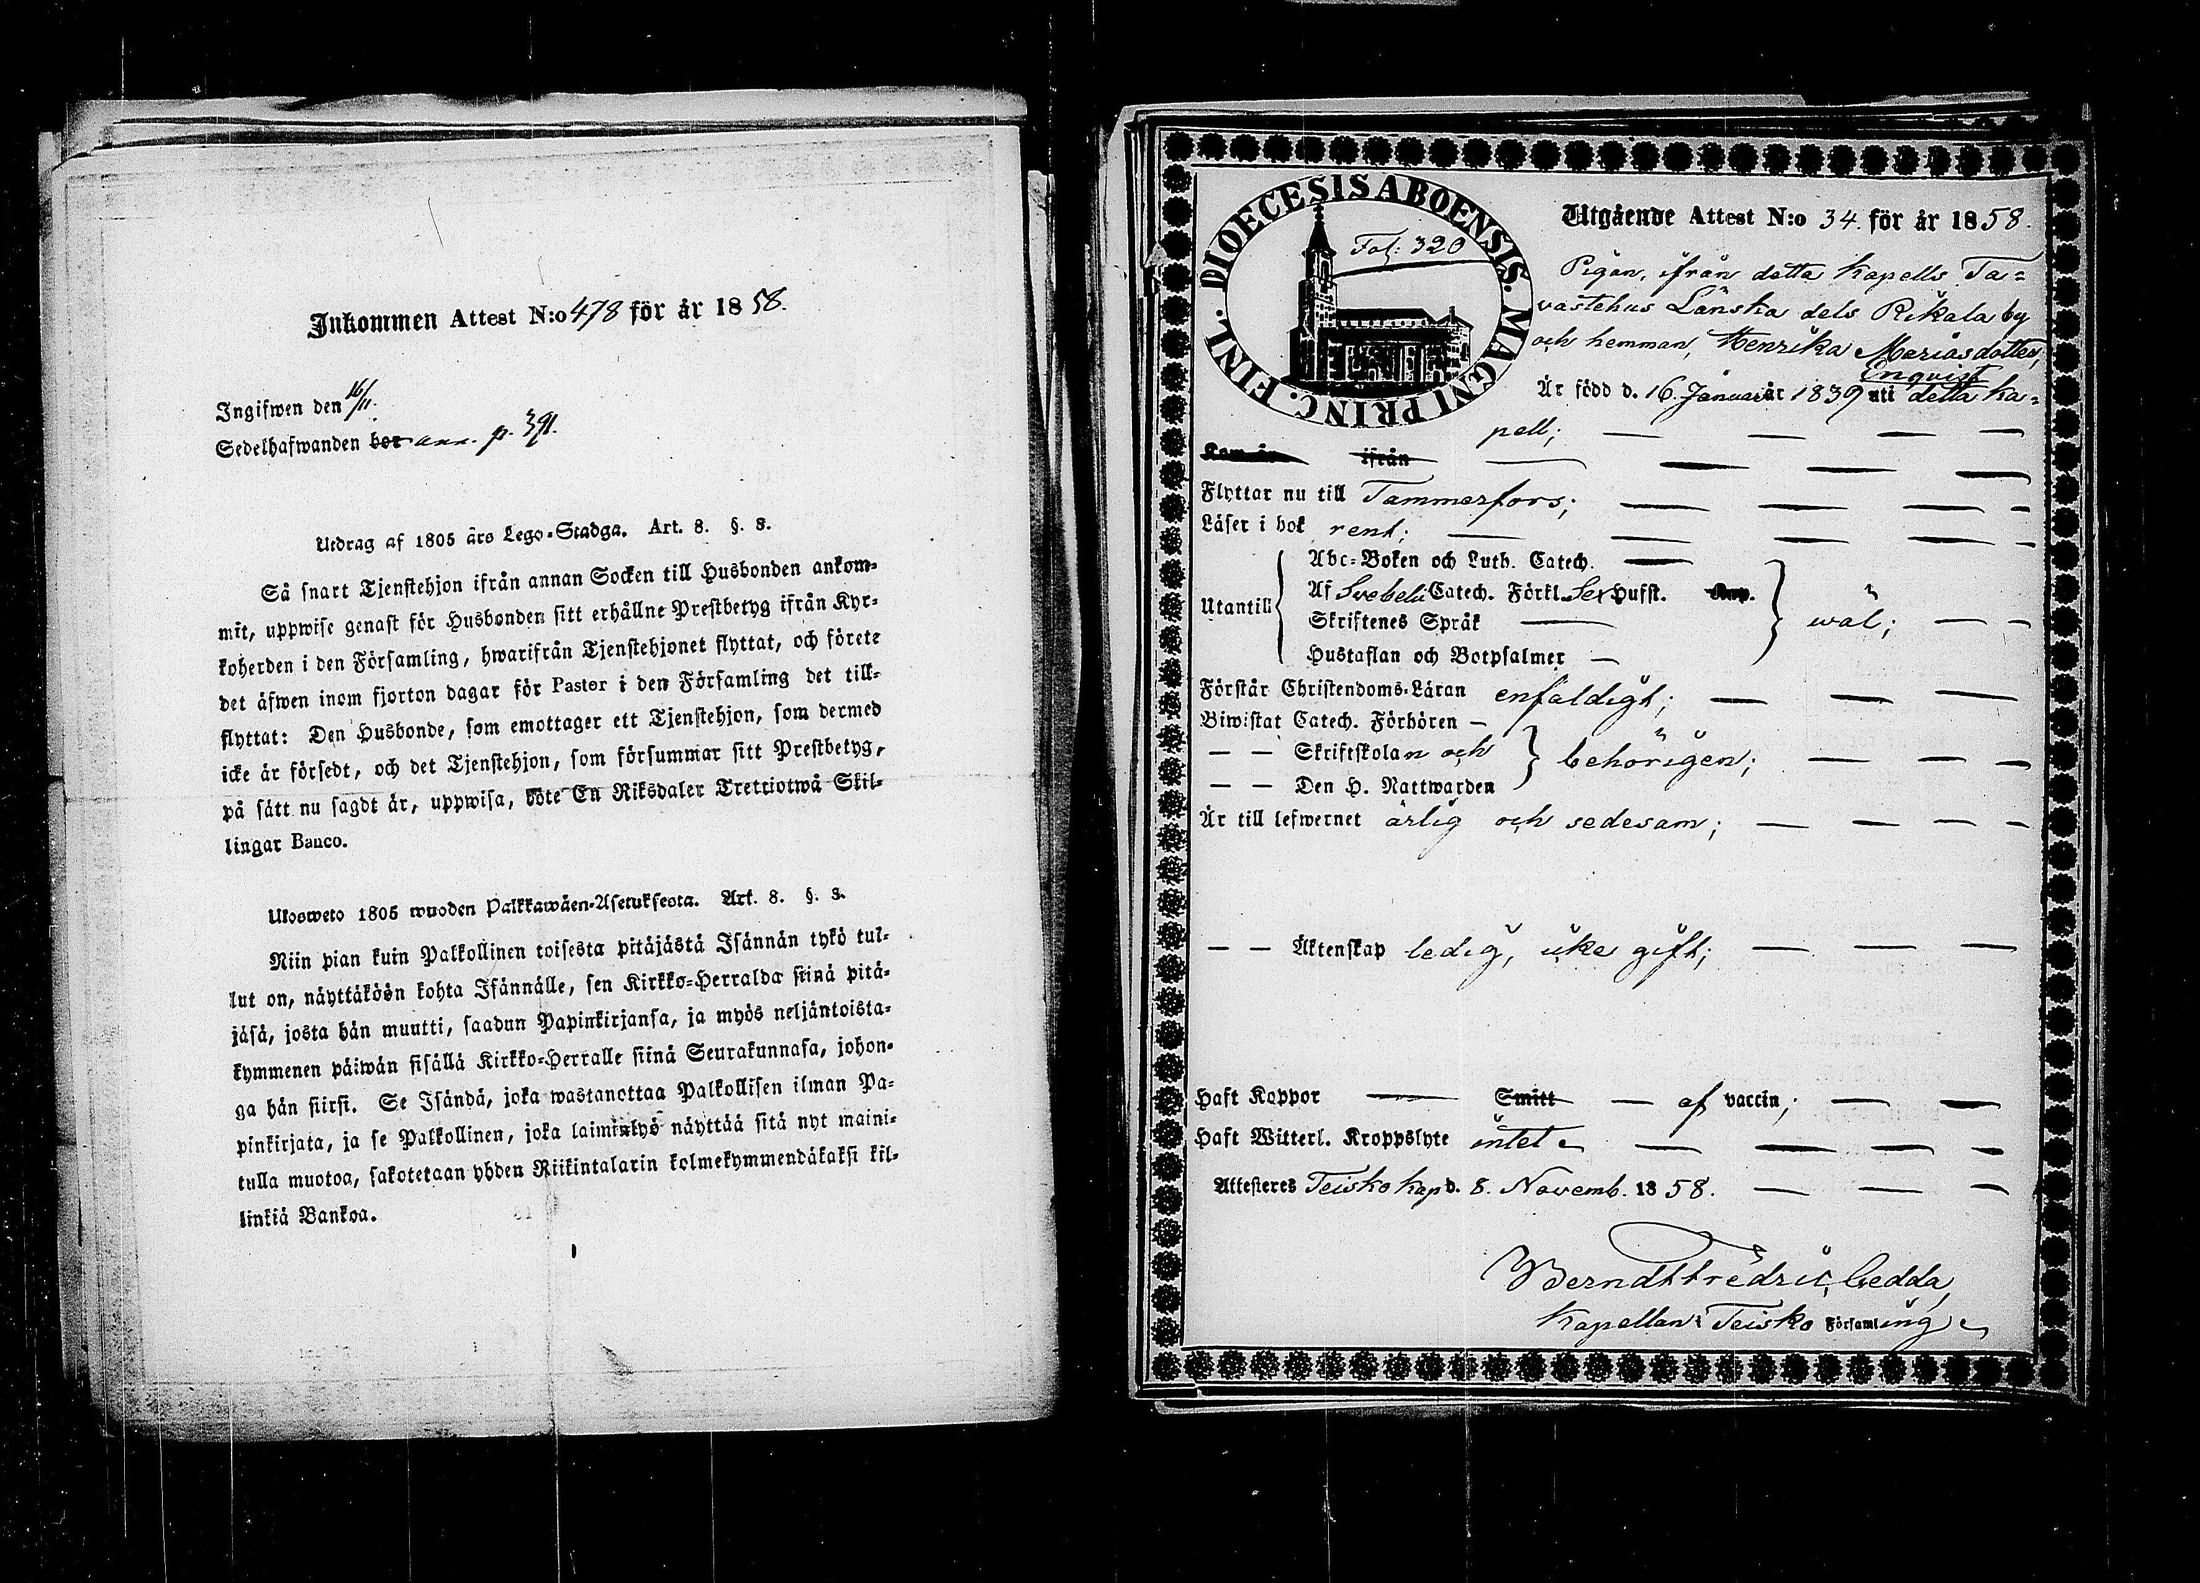 Inkommen Attest N:o 478 för år 1858.
Ingifwen den 16/11.
Sedelhafwanden bor ann. p. 391.
Utdrag af 1805 års Lego-Stadga. Art. 8. §. 8.
Så snart Tjenstehjon ifrån annan Socken till Husbonden ankom-
mit, uppwise genast för Husbonden sitt erhållne Prestbetyg ifrån Kyr-
koherden i den Församling, hwarifrån Tjenstehjonet flyttat, och förete
det äfwen inom fjorton dagar för Pastor i den Församling det till-
flyttat: Den Husbonde, som emottager ett Tjenstehjon, som dermed
icke är försedt, och det Tjenstehjon, som försummar sitt Prestbetyg,
på sätt nu sagdt är, uppwisa, böte En Riksdaler Trettiotwå Skil-
lingar Banco.
Ulosweto 1805 wuoden Palkkawäen-Asetuksesta. Art. 8. §. 8.
Niin pian kuin Palkollinen toisesta pitäjästä Isännän tykö tul-
lut on, näyttäköön kohta Isännälle, sen Kirkko-Herralda siinä pitä-
jäsä, josta hän muutti, saadun Papinkirjansa, ja myös neljäntoista-
kymmenen päiwän sisällä Kirkko-Herralle siinä Seurakunnasa, johon-
ga hän siirsi. Se Isändä, joka wastanottaa Palkollisen ilman Pa-
pinkirjata, ja se Palkollinen, joka laiminlyö näyttää sitä nyt maini-
tulla muotoa, sakotetaan yhden Riikintalarin kolmekymmendäkaksi kil-
linkiä Bankoa.
DIOECESIS ABOENSIS. MAGNI PRINC. FINL.
Fol: 320
Utgående Attest N:o 34. för år 1858.
Pigan, ifrån detta Kapells Ta-
vastehus Länska dels Rikala by
och hemman, Henrika Mariasdotter,
Enqvist
Är född d. 16. Januari år 1839 uti detta Ka-
pell;
Kom år ifrån
Flyttar nu till Tammerfors;
Läser i bok rent;
Abc-Boken och Luth. Catech.
Utantill Af Svebelii Catech. Förkl. Sex Hufst. Kap.
Skriftenes Språk wäl;
Hustaflan och Botpsalmer
Förstår Christendoms-Läran enfaldigt;
Biwistat Catech. Förhören
— — Skriftskolan och behörigen;
— — Den H. Nattwarden
Är till lefwernet ärlig och sedesam;
— — Äktenskap ledig, icke gift;
Haft Koppor Smitt af vaccin;
Haft Witterl. Kroppslyte intet.
Attesteres Teisko kap d. 8. Novemb. 1858.
Berndt Fredric Gedda,
Kapellan i Teisko Församling.